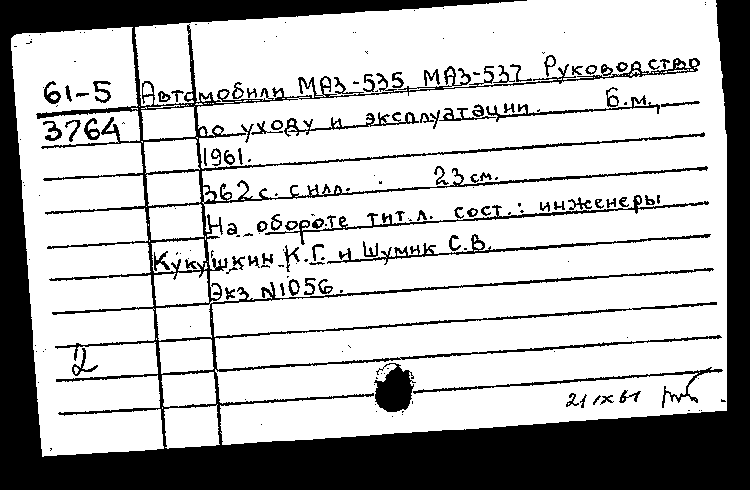 61-5 Автомобили МАЗ-535, МАЗ-537. Руководство
3764 по уходу и эксплуатации. Б.м.,
1961.
362 с. с илл. 23 см.
На обороте тит.л. сост.: инженеры
Кукушкин К.Г. и Шумик С.В.
Экз. N1056.
2
21 IX 61